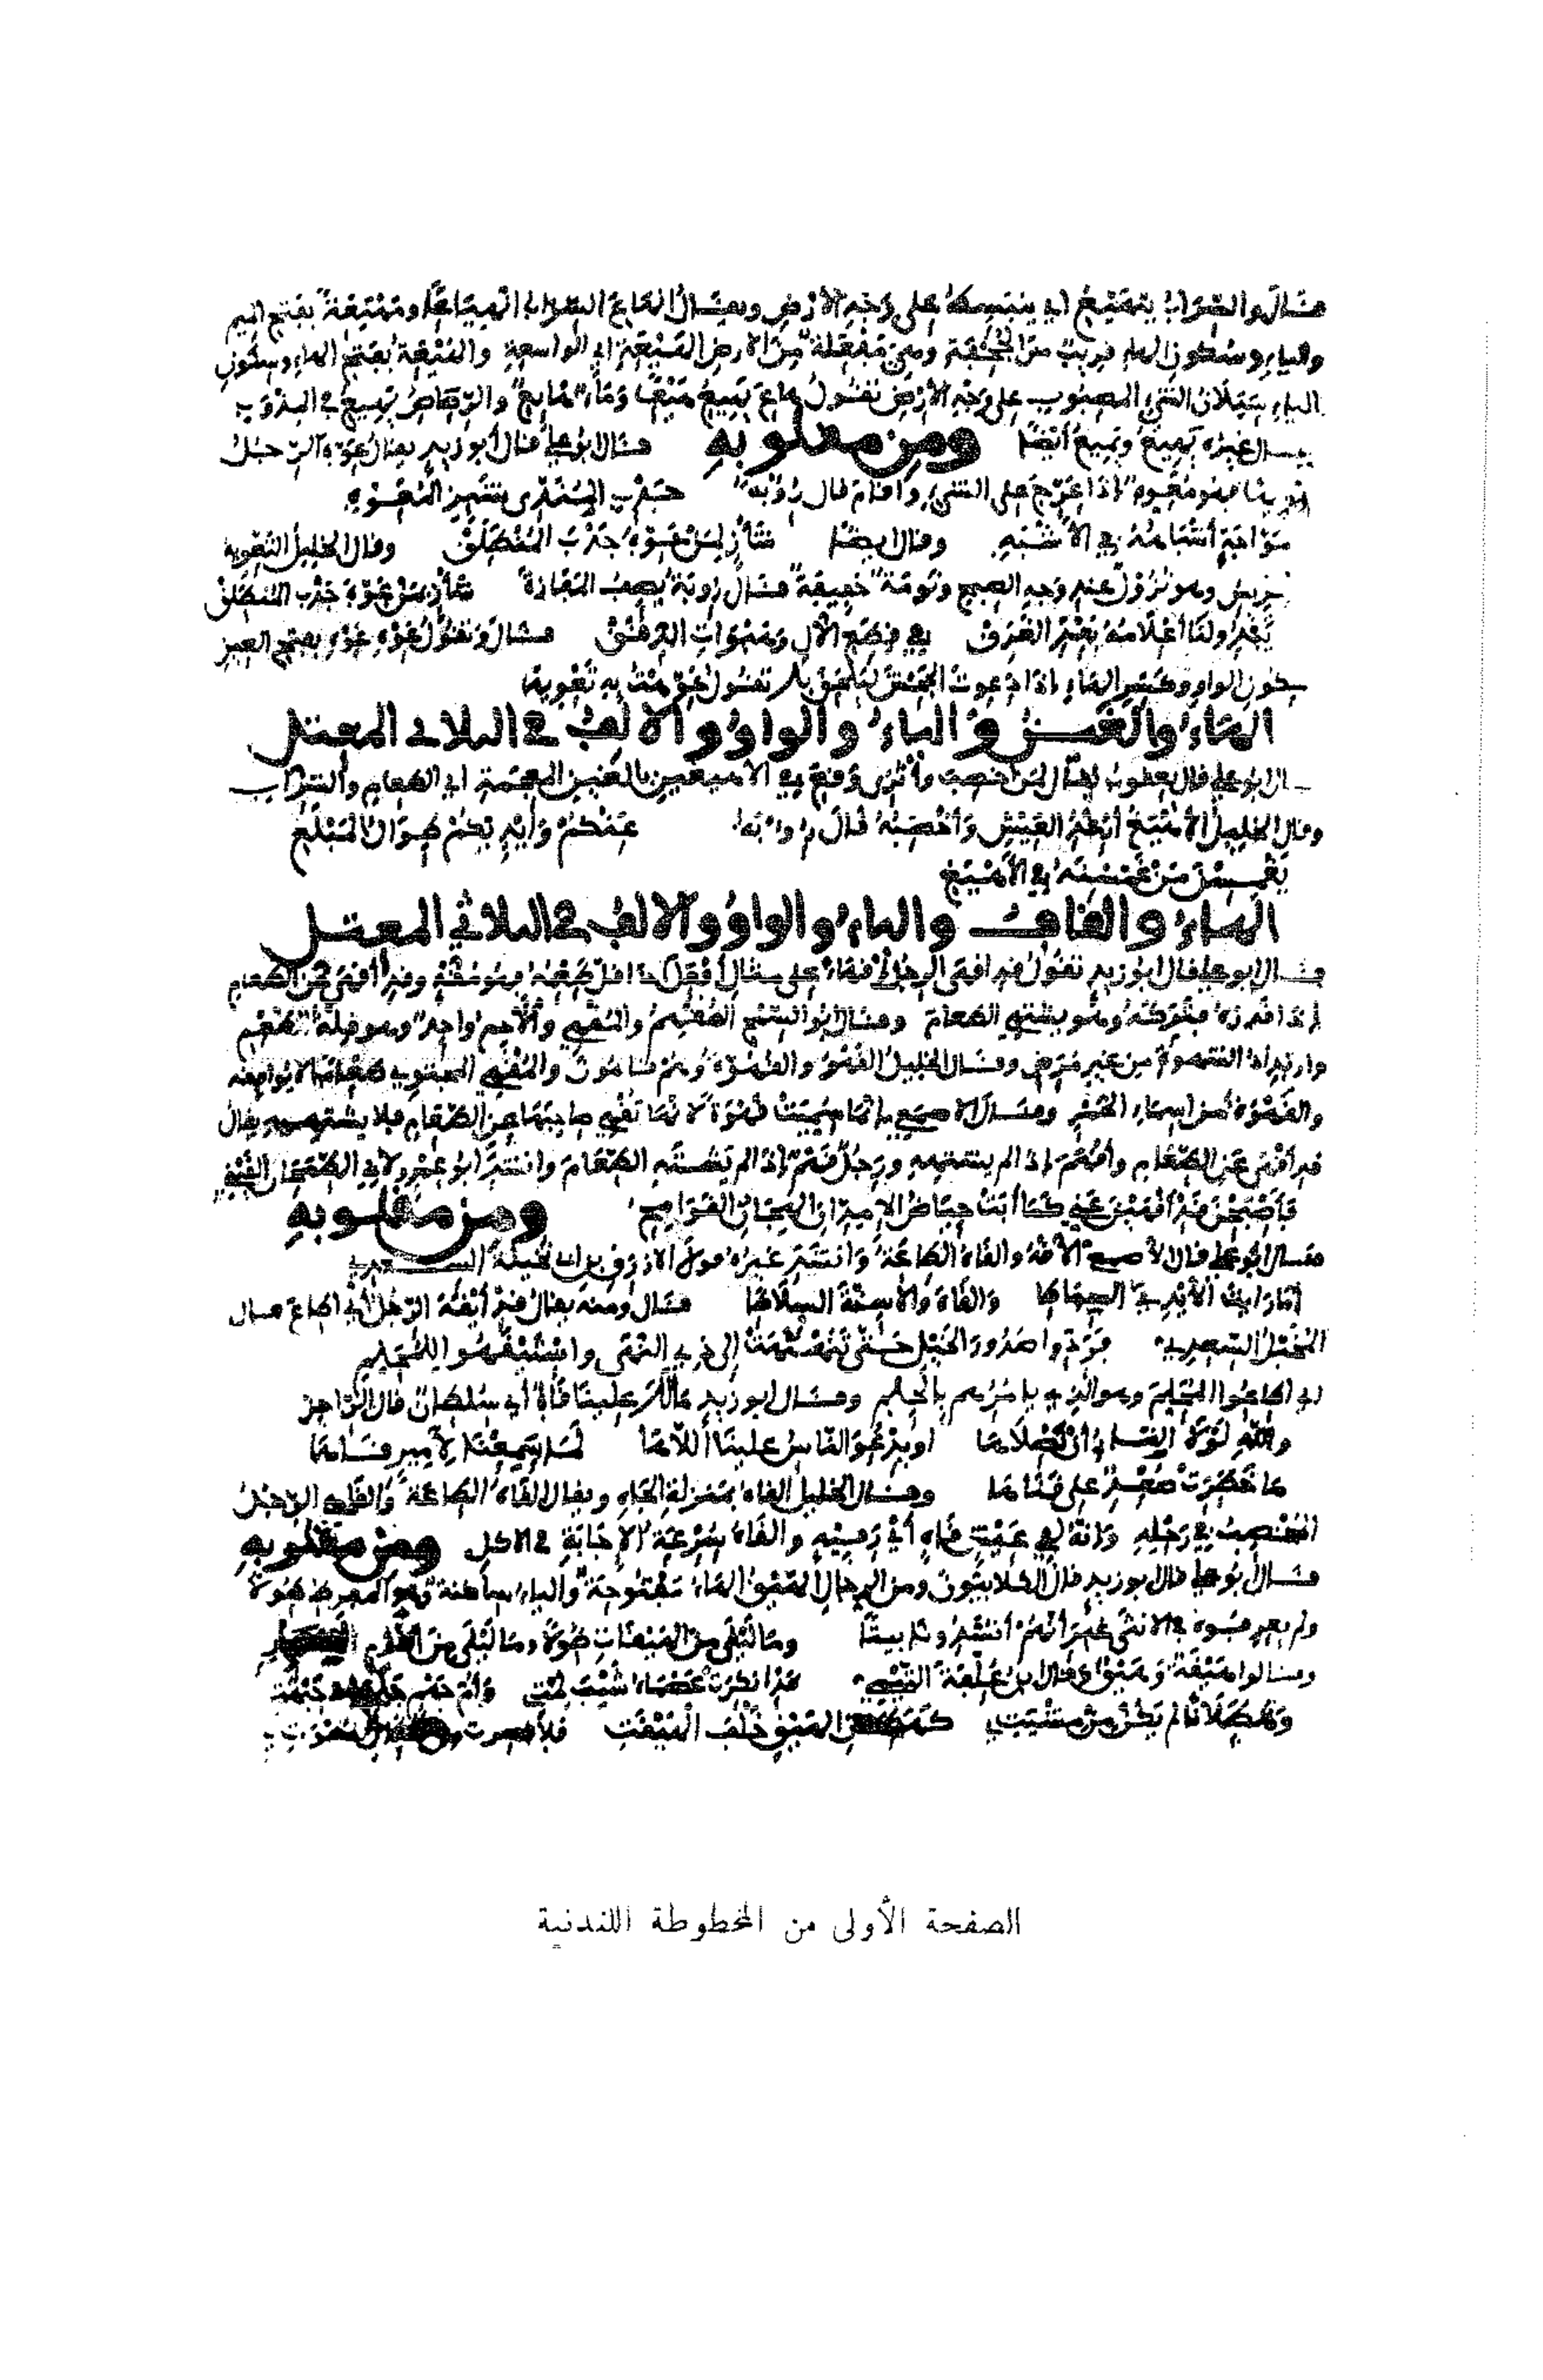 قال والسراب يتهيع أي ينبسط على وجه الأرض ويقال انهاع السراب انهياعا ومهيعة بفتح الميم
والياء وسكون الهاء قريب من الجحفة وهي مفعلة من الأرض المهيعة أي الواسعة والهيعة بفتح الهاء وسكون
الياء سيلان الشيء المصبوب على وجه الأرض تقول هاع يهيع هيعا وماء هائع والرصاص يهيع في المذوب
غيره يهيع ويميع أيضا ومن مقلوبه قال أبو علي قال أبو زيد يقال عوه الرجل
فهو معوه إذا عرج على الشيء وأقام قال رؤبة جدب المندى شئز المعوه
مواجه أشباهه في الأشبه وقال أيضا شأز بمن عوه جدب المنطلق وقال الخليل التعويه
وهو نزول عند وجه الصبح ونومة خفيفة قال رؤبة يصف المفازة شأز بمن عوه جدب المنطلق
تبدو لنا أعلامه بعد الغرق في قطع الآل وهبوات الدقق قال وتقول عوه عوه بفتح العين
سكون الواو وكسر الهاء إذا دعوت الجحش ليلحق بك تقول عوهت به تعويها
الهاء والغين والياء والواو والألف في الثلاثي المعتل
قال أبو علي قال يعقوب يقال لمن أخصب وأثرى وقع في الأهيغين بالغين المعجمة أي الطعام والشراب
وقال الخليل الأهيغ أرغد العيش وأخصبه قال رؤبة عنكم وأيديكم طوال المبلغ
يغمسن من غمسنه في الأهيغ
الهاء والقاف والياء والواو والألف في الثلاثي المعتل
قال أبو علي قال أبو زيد تقول قد أقهى الرجل إقهاء على مثال أفعل إذا قل طعمه وقد أقهى عن الطعام
إذا قذره فتركه وهو يشتهي الطعام وقال أبو السمح المقهم والمقهي والآجم واحد وهو قلة الطعم
وارتداد الشهوة من غير مرض وقال الخليل القهو والقهوة وهم قاهون والمقهي المجتوي طعاما لا يوافقه
والقهوة من أسماء الخمر وقال الأصمعي إنما سميت قهوة لأنها تقهي صاحبها عن الطعام فلا يشتهيه يقال
قد أقهى عن الطعام وأقهم إذا لم يشتهه ورجل قهم إذا لم يشته الطعام وأنشد أبو عمرو لأبي الطمحان القيني
فأصبحن قد أقهين عني كما أبت حياض الإمدان الهجان القوامح ومن مقلوبه
قال أبو علي قال الأصمعي القاه والقاه الطاعة وأنشد غيره
والقاه والأسنة قال ومنه يقال قد أيقه الرجل أي أطاع قال
المخبل السعدي فردوا صدور الخيل حتى تنهنهت إلى ذي النهى واستيقهوا للمحلم
أي أطاعوا المحلم وهو الذي يأمرهم بالحلم وقال أبو زيد مالك علينا قاه أي سلطان قال الراجز
والله لولا أن نصلاها أو يدعو الناس علينا اللاها لما سمعنا لأمير قاها
ما خطرت سعد على قناها وقال الخليل القاه بمنزلة الجاه ويقال القاه الطاعة والقاه الرجل
المخصب في رحله وإنه لفي عيش قاه أي رفيه والقاه سرعة الإجابة في الأكل ومن مقلوبه
قال أبو علي قال أبو زيد قال الكلابيون ومن الرجال الهيق الهاء مفتوحة والياء ساكنة وهو المفرط طولا
ولم يعرفوه في الأنثى غير أنهم أنشدونا بيتا وما ليلى من الهيقات طولا وما ليلى من
وقالوا هيقة وهيق وقال ابن علقة التيمي
كالهيق خلف الهيقت
الصفحة الأولى من المخطوطة اللندنية